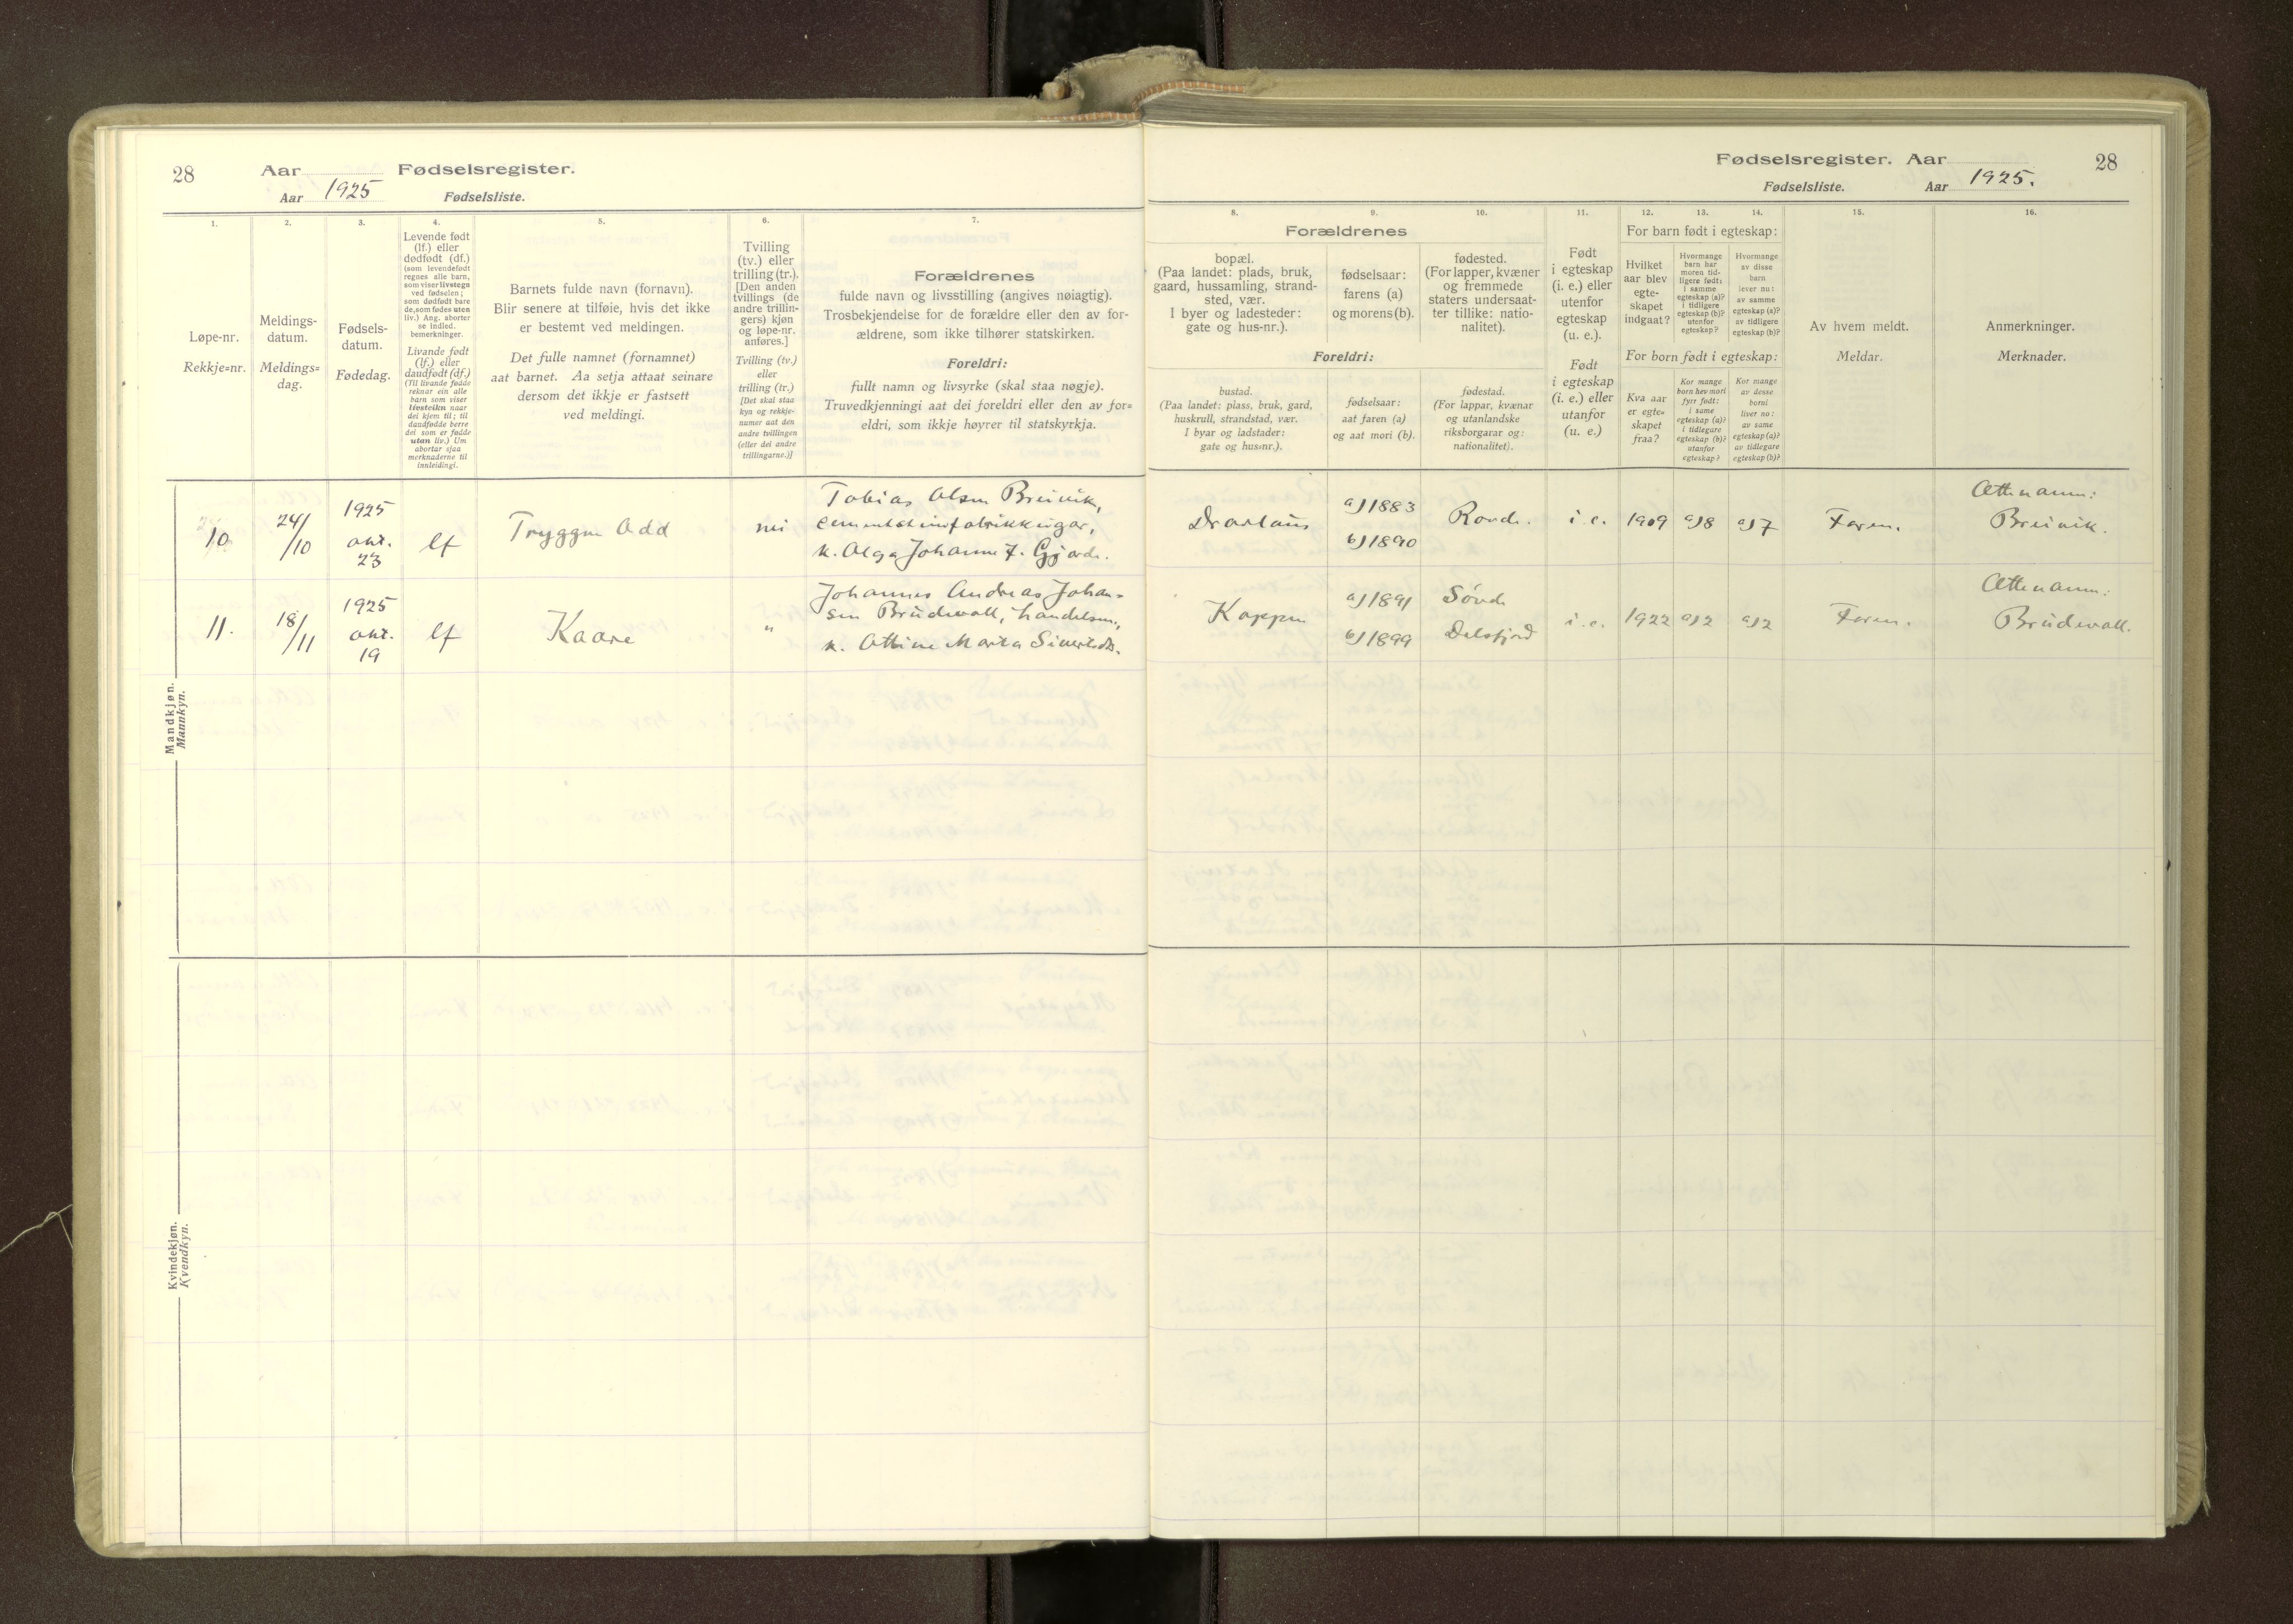 28
Aar
Fødselsregister.
Aar 1925
Fødselsliste.
1.
Løpe-nr.
Rekkje-nr.
2.
Meldings-
datum.
Meldings-
dag.
3.
Fødsels-
datum.
Fødedag.
4.
Levende født
(lf.) eller
dødfødt (df.)
(som levendefødt
regnes alle barn,
som viser livstegn
ved fødselen;
som dødfødt bare
de, som fødes uten
liv.) Ang. aborter
se indled.
bemerkninger.
Livande født
(lf.) eller
daudfødt (df.)
(Til livande fødde
reknar ein alle
barn som viser
livsteikn naar
dei kjem til; til
daudfødde berre
dei som er fødde
utan liv.) Um
abortar sjaa
merknaderne til
innleidingi.
5.
Barnets fulde navn (fornavn).
Blir senere at tilføie, hvis det ikke
er bestemt ved meldingen.
Det fulle namnet (fornamnet)
aat barnet. Aa setja attaat seinare
dersom det ikkje er fastsett
ved meldingi.
6.
Tvilling
(tv.) eller
trilling (tr.).
[Den anden
tvillings (de
andre trillin-
gers) kjøn
og løpe-nr.
anføres.]
Tvilling (tv.)
eller
trilling (tr.)
[Det skal staa
kyn og rekkje-
numer aat den
andre tvillingen
(eller dei andre
trillingarne.)]
7.
Forældrenes
fulde navn og livsstilling (angives nøiagtig).
Trosbekjendelse for de forældre eller den av for-
ældrene, som ikke tilhører statskirken.
Foreldri:
fullt namn og livsyrke (skal staa nøgje).
Truvedkjenningi aat dei foreldri eller den av for-
eldri, som ikkje høyrer til statskyrkja.
Mandkjøn.
Mannkyn.
10
24/
/10
1925
okt.
23
lf
Tryggve Odd
nei
Tobias Olsen Breivik,
k. Olga Johanne f. Gjerde.
11.
18/
/11
1925
okt.
19
lf
Kaare
"
Johannes Andreas Johan-
sen Brudevoll, handelsm.,
Kvindekjøn.
Kvendkyn.
Fødselsregister. Aar
28
Fødselsliste.
Aar 1925.
8.
Forældrenes
bopæl.
(Paa landet: plads, bruk,
gaard, hussamling, strand-
sted, vær.
I byer og ladesteder:
gate og hus-nr.).
Foreldri:
bustad.
(Paa landet: plass, bruk, gard,
huskrull, strandstad, vær.
I byar og ladstader:
gate og hus-nr.).
9.
fødselsaar:
farens (a)
og morens (b).
fødselsaar:
aat faren (a)
og aat mori (b).
10.
fødested.
(For lapper, kvæner
og fremmede
staters undersaat-
ter tillike: natio-
nalitet).
fødestad.
(For lappar, kvænar
og utanlandske
riksborgarar og:
nationalitet).
11.
Født
i egteskap
(i. e.) eller
utenfor
egteskap
(u. e.).
Født
i egteskap
(i. e.) eller
utanfor
(u. e.)
For barn født i egteskap:
12.
Hvilket
aar blev
egte-
skapet
indgaat?
13.
Hvormange
barn har
moren tid-
ligere født:
i samme
egteskap (a)?
i tidligere
egteskap (b)?
utenfor
egteskap?
14.
Hvormange
av disse
barn
lever nu:
av samme
egteskap (a)?
av tidligere
egteskap (b)?
For born født i egteskap:
Kva aar
er egte-
skapet
fraa?
Kor mange
born hev mori
fyrr født:
i same
egteskap (a)?
i tidlegare
egteskap (b)?
utanfor
egteskap?
Kor mange
av desse
borni
liver no:
av same
egteskap (a)?
av tidlegare
egteskap (b)?
15.
Av hvem meldt.
Meldar.
16.
Anmerkninger.
Merknader.
a) 1883
b) 1890
Rovde.
i. e.
1909
a) 8
a) 7
Faren.
Ættenamn:
Breivik.
Koppen
a) 1891
b) 1899
Søvde
Dalsfjord
i. e.
1922
a) 2
a) 2
Faren.
Ættenamn:
Brudevoll.